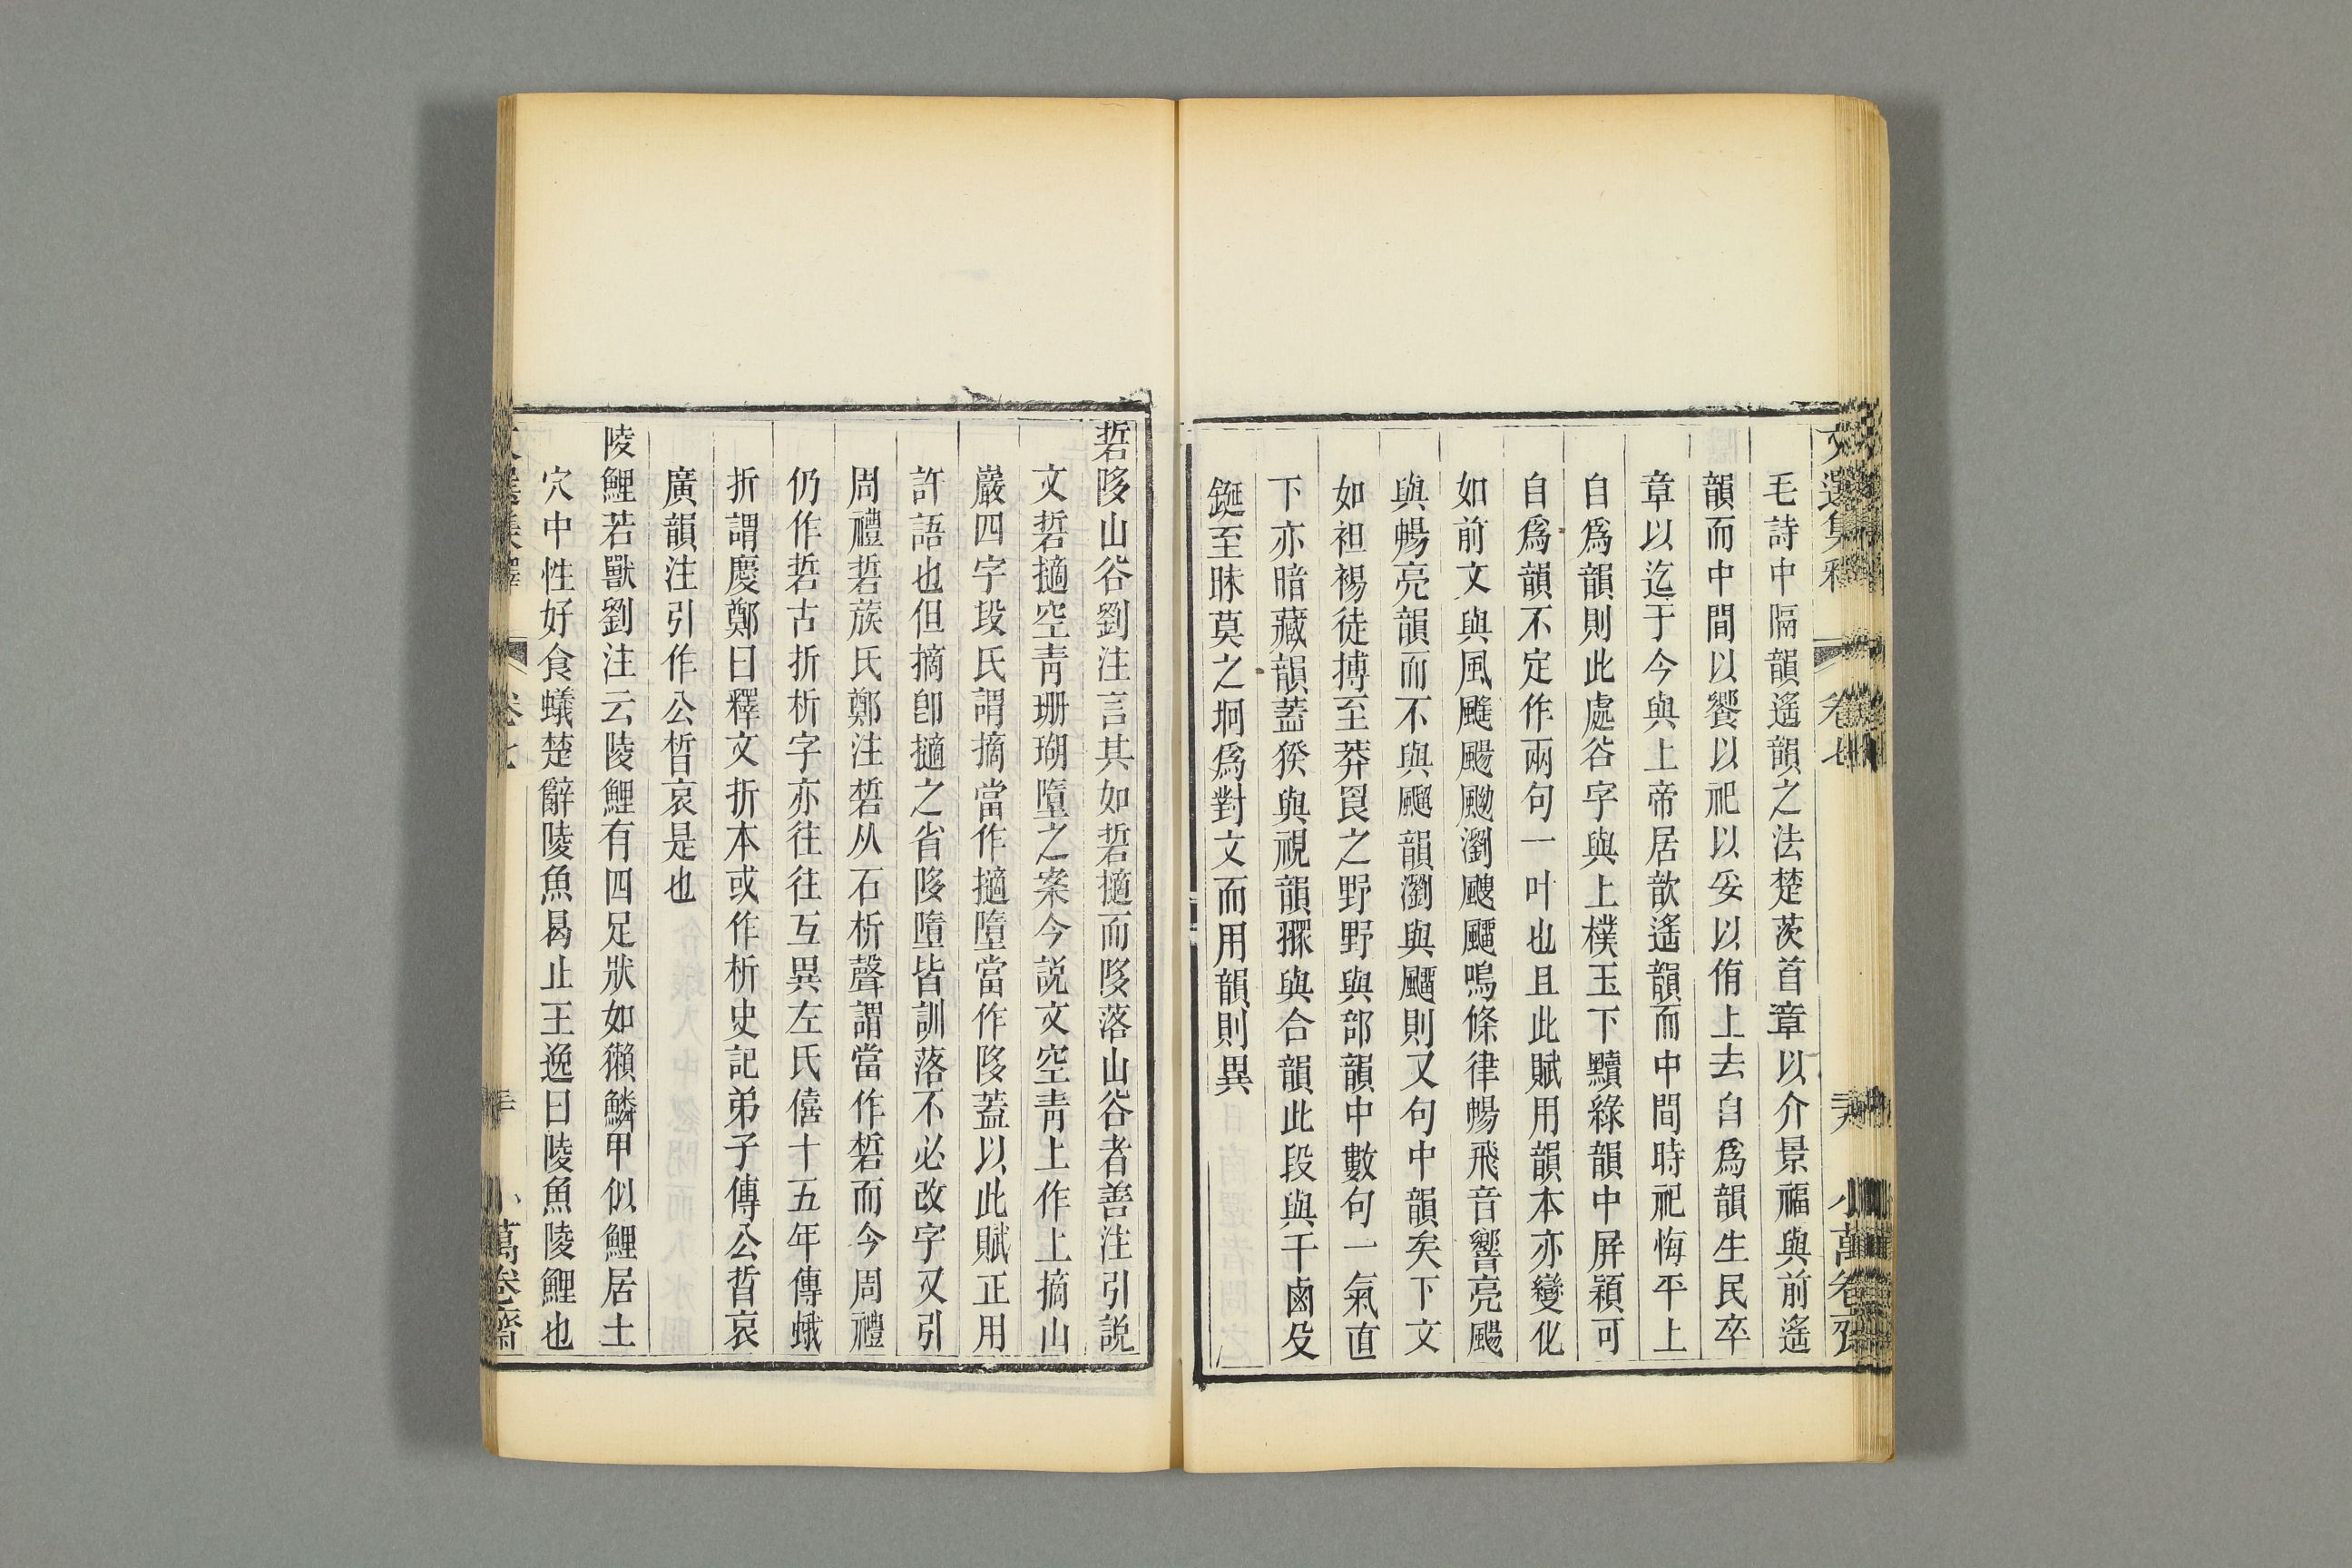 毛詩中隔韻遙韻之法楚茨首章以介景福與前遙
韻而中間以饗以祀以妥以侑上去自爲韻生民卒
章以迄于今與上帝居歆遙韻而中間時祀悔平上
自爲韻則此處谷字與上樸玉下黷綠韻中屏穎可
自爲韻不定作兩句一叶也且此賦用韻本亦變化
如前文與風颺飀颼嗚條律暢飛音響亮
與暢亮韻而不與韻瀏與則又句中韻矣下文
如袒裼徒搏至莽罠之野野與部韻中數句一氣直
下亦暗藏韻蓋猤與視韻猴與合韻此段與干鹵殳
鋋至昧莫之坰爲對文而用韻則異
硩陊山谷劉注言其如硩擿而陊落山谷者善注引説
文硩擿空靑珊瑚墮之案今説文空靑上作上摘山
巖四字段氏謂摘當作擿墮當作陊蓋以此賦正用
許語也但摘卽擿之省陊墮皆訓落不必改字又引
周禮硩蔟氏鄭注硩从石析聲謂當作硩而今周禮
仍作硩古折析字亦往往互異左氏僖十五年傳蛾
折謂慶鄭曰釋文折本或作析史記弟子傳公晳哀
廣韻注引作公晳哀是也
陵鯉若獸劉注云陵鯉有四足狀如獺鱗甲似鯉居土
穴中性好食蟻楚辭陵魚曷止王逸曰陵魚陵鯉也
卷七
小萬卷齋